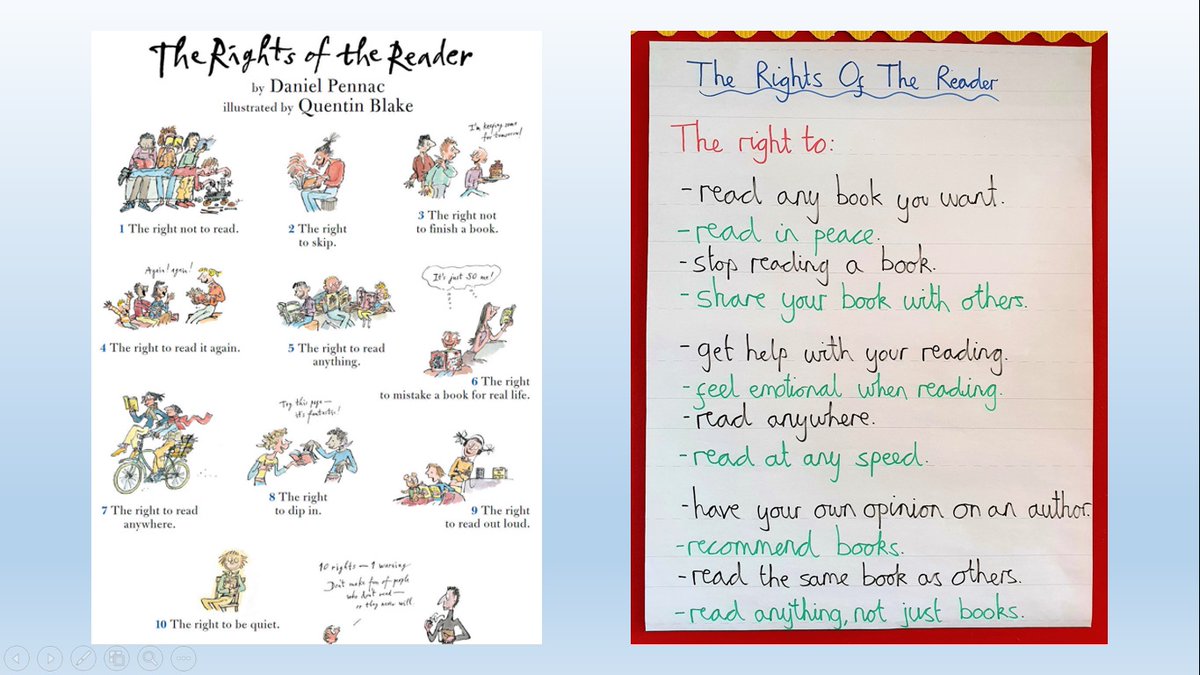 The Rights of the Reader
by Daniel Pennac
illustrated by Quentin Blake
I'm keeping some
for tomorrow!
1 The right not to read.
2 The right
to skip.
3 The right not
to finish a book.
Again! again!
It's just SO me!
4 The right to read it again.
5 The right to read
anything.
6 The right
to mistake a book for real life.
Try this page—
it's fantastic!
7 The right to read
anywhere.
8 The right
to dip in.
9 The right
to read out loud.
10 rights — 1 warning
Don't make fun of people
who don't read—
or they never will.
10 The right to be quiet.
The Rights Of The Reader
The right to:
- read any book you want.
- read in peace.
- stop reading a book.
- share your book with others.
- get help with your reading.
- feel emotional when reading.
- read anywhere.
- read at any speed.
- have your own opinion on an author.
- recommend books.
- read the same book as others.
- read anything, not just books.